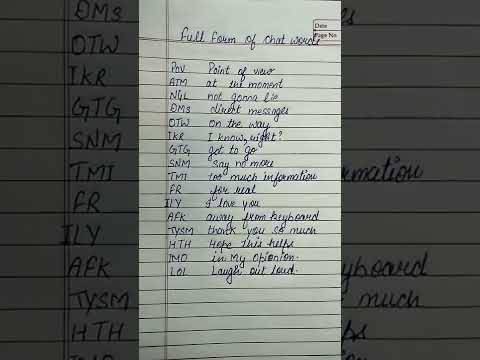 Full Form of Chat words
Date
Page No.
POV Point of view
ATM at the moment
NGL not gonna lie
DMs direct messages
OTW on the way
IKR I know, right?
GTG got to go
SNM Say no more
TMI too much information
FR for real
ILY I love you
AFK away from keyboard
TYSM thank you so much
HTH Hope this helps
IMO in My Opionion.
LOL Laugh out loud.
DMs
OTW
IKR
GTG
SNM
TMI
FR
ILY
AFK
TYSM
HTH
rmation
keyboard
much